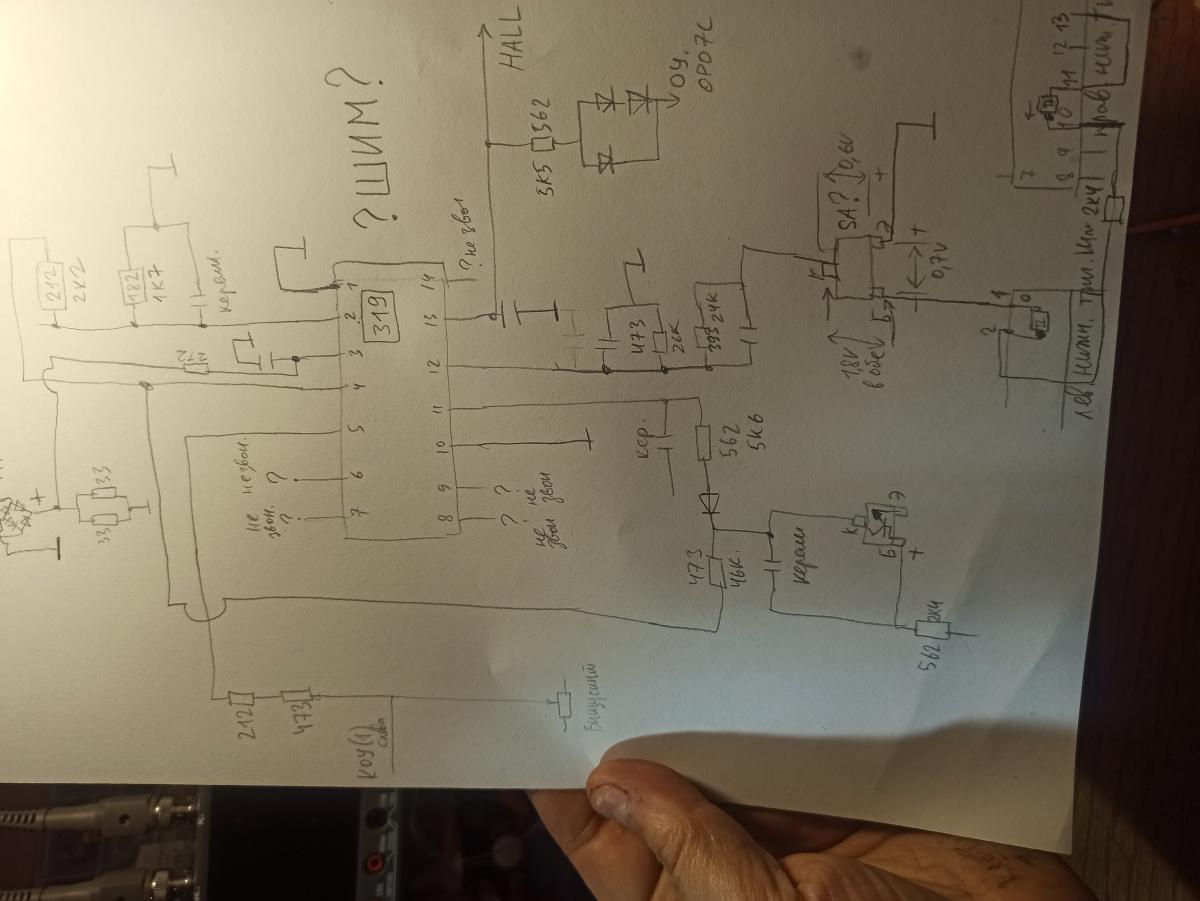 ?ШИМ?
HALL
562
3К5
ОУ.
OP07C
212
2К2
182
1К7
керам.
? не звон
319
1
2
3
4
5
6
7
14
13
12
11
10
9
8
незвон.
?
не
звон.
?
?
не
звон
?
не
звон
33
33
473
26К
393
24К
SA?
0,6V
+
К
Б
Э
1,8V
в обе
+
0,7V
кер.
562
5К6
473
46К.
керам
К
Б
Э
+
562
2К4
212
473
КОУ(1)
слева
2
1
0
лев.
нижн.
трим.
2К4
7
8
9
10
11
12
13
прав.
нит.